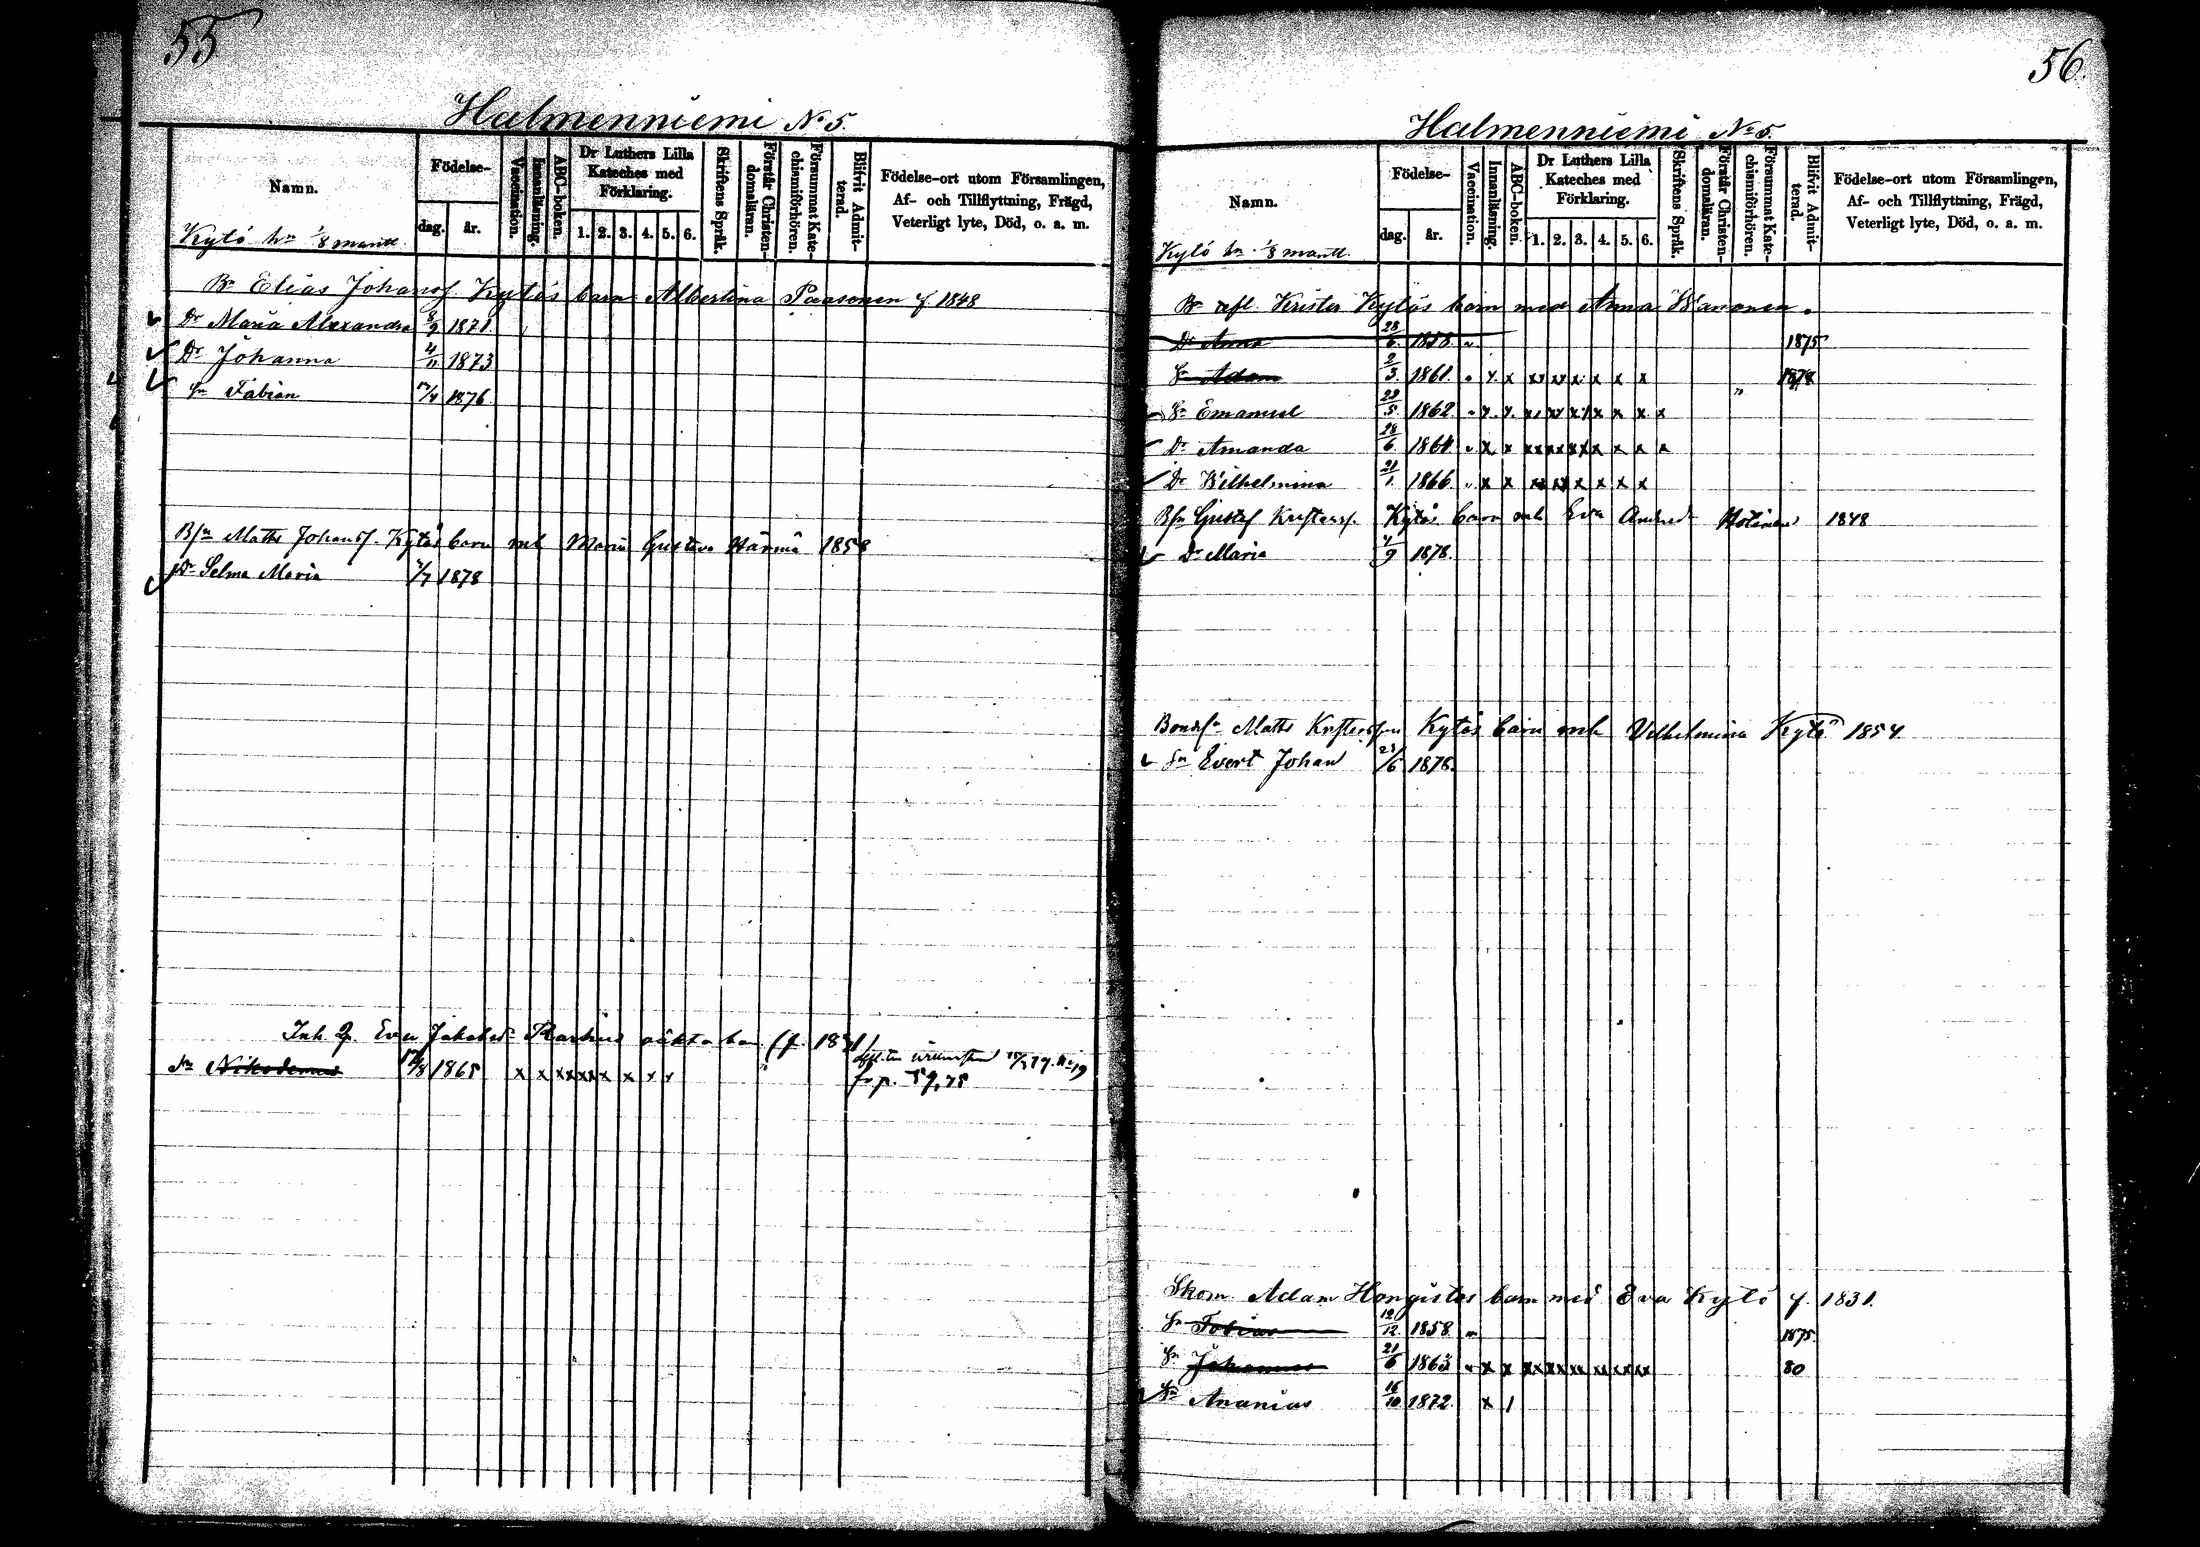 55
Halmenniemi No 5.
Namn.
Födelse-
dag.
år.
Vaccination.
Innanläsning.
ABC-boken.
Dr Luthers Lilla Kateches med Förklaring.
1. 2. 3. 4. 5. 6.
Skriftens Språk.
Förstår Christen-domsläran.
Försummat Kate-chismiförhören.
Blifvit Admit-terad.
Födelse-ort utom Församlingen,
Af- och Tillflyttning, Frägd,
Veterligt lyte, Död, o. a. m.
Kytö hn 1/8 mantl.
Bn Elias Johansf Kytös barn Albertina Paasonen f. 1848
Dr Maria Alexandra 8/9 1871.
Dr Johanna 4/11 1873
Sn Fabian 17/4 1876.
Bfn Matts Johansf. Kytös barn mh Maria Gustava Härmä 1858
Dr Selma Maria 4/7 1878
Inh. Eva Jakobsd Karhus oäkta barn (f. 1831)
Sn Nikodemus 17/8 1865 x x xx xx x x x x
fr p. 59, 75
56.
Halmenniemi No 5.
Namn.
Födelse-
dag.
år.
Vaccination.
Innanläsning.
ABC-boken.
Dr Luthers Lilla Kateches med Förklaring.
1. 2. 3. 4. 5. 6.
Skriftens Språk.
Förstår Christen-domsläran.
Försummat Kate-chismiförhören.
Blifvit Admit-terad.
Födelse-ort utom Församlingen,
Af- och Tillflyttning, Frägd,
Veterligt lyte, Död, o. a. m.
Kytö hn 1/8 mantl.
Bn afl. Krister Kytös barn med Anna Wanonen.
Dr Anna 28/6 1858 " 1875
Sn Adam 2/3 1861. " x x xx xx x x x x " 1878
Sn Emanuel 28/5 1862. " x x xx xx xx x x x x
Dr Amanda 28/6 1864 " x x xx xx xx x x x x
Dr Wilhelmina 21/1 1866. " x x xx xx x x x x
Bfn Gustaf Kristersf. Kytös barn mh Eva Andersd 1848
Dr Maria 4/9 1878.
Bondsn Matts Kristersson Kytös barn mh Vilhelmina Kytö 1854
Sn Evert Johan 23/6 1878.
Skom. Adam Hongistos barn med Eva Kytö f. 1831.
Sn Tobias 12/12 1858. " 1875
Sn Johannes 21/6 1863 " x x xx xx xx xx xx xx 80
Sn Ananias 16/10 1872. x /